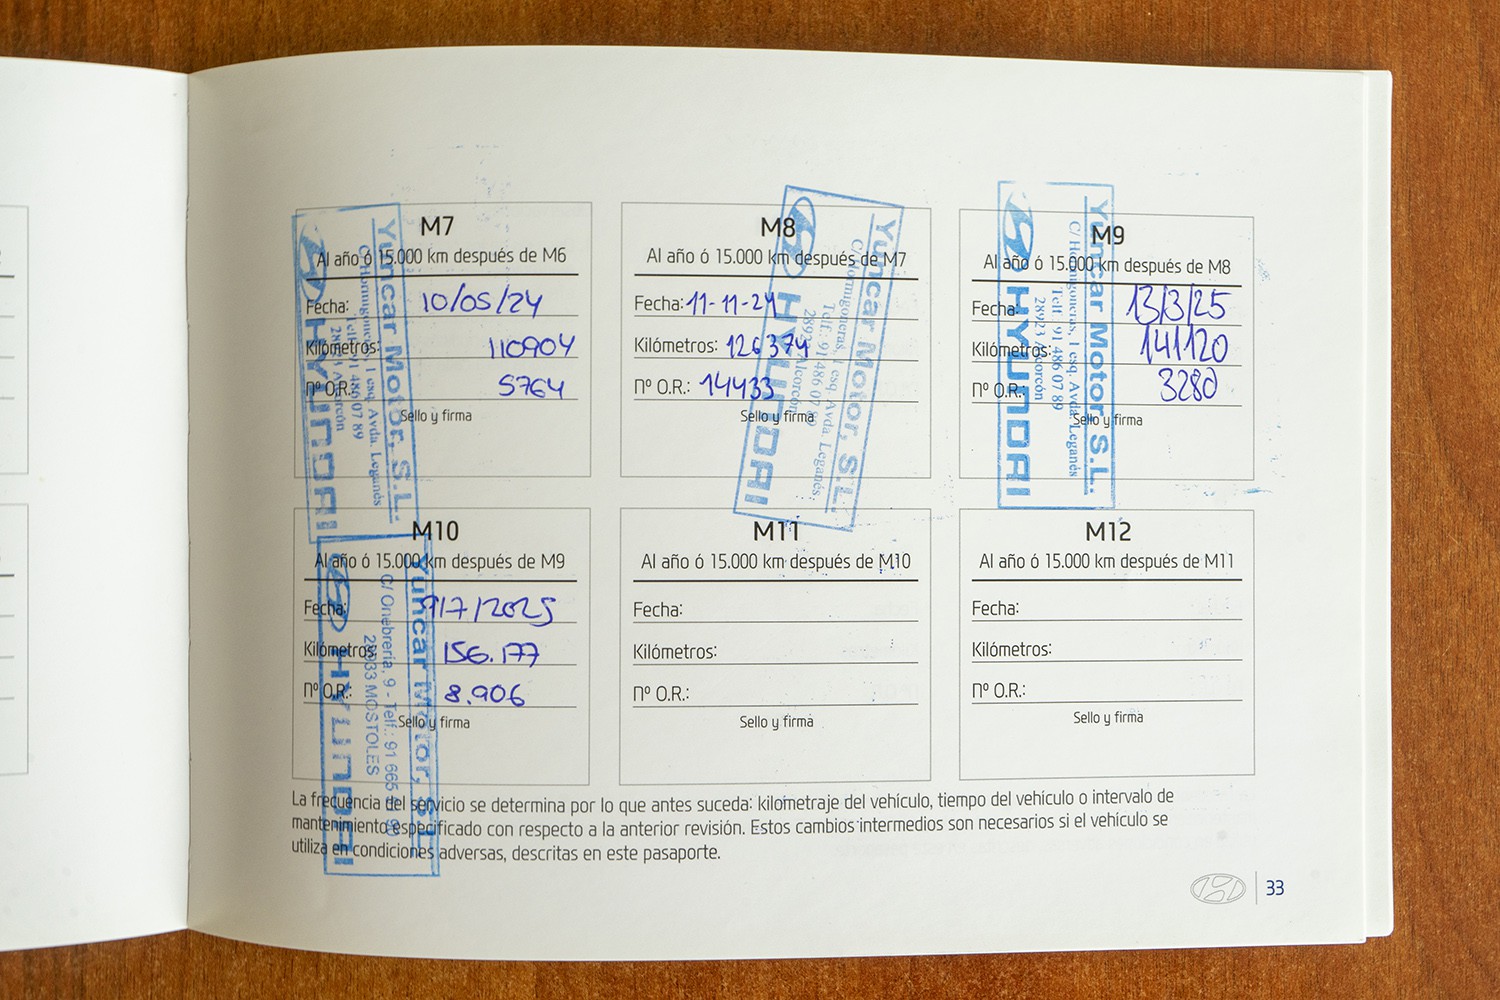 M7
Al año ó 15.000 km después de M6
Fecha: 10/05/24
Kilómetros: 110904
Nº O.R.: 5764
Sello y firma
Yuncar Motor, S.L.
C/ Hormigoneras, 1 esq. Avda. Leganés
Telf. 91 486 07 89
28923 Alcorcón
HYUNDAI
M8
Al año ó 15.000 km después de M7
Fecha: 11-11-24
Kilómetros: 126374
Nº O.R.: 14433
Sello y firma
Yuncar Motor, S.L.
C/ Hormigoneras, 1 esq. Avda. Leganés
Telf. 91 486 07 89
28923 Alcorcón
HYUNDAI
M9
Al año ó 15.000 km después de M8
Fecha: 13/3/25
Kilómetros: 141120
Nº O.R.: 3280
Sello y firma
Yuncar Motor, S.L.
C/ Hormigoneras, 1 esq. Avda. Leganés
Telf. 91 486 07 89
28923 Alcorcón
HYUNDAI
M10
Al año ó 15.000 km después de M9
Fecha: 9/7/2025
Kilómetros: 156.177
Nº O.R.: 8.906
Sello y firma
Yuncar Motor, S.L.
C/ Onebrería, 9 - Telf.: 91 665
28933 MOSTOLES
HYUNDAI
M11
Al año ó 15.000 km después de M10
Fecha:
Kilómetros:
Nº O.R.:
Sello y firma
M12
Al año ó 15.000 km después de M11
Fecha:
Kilómetros:
Nº O.R.:
Sello y firma
La frecuencia del servicio se determina por lo que antes suceda: kilometraje del vehículo, tiempo del vehículo o intervalo de
mantenimiento especificado con respecto a la anterior revisión. Estos cambios intermedios son necesarios si el vehículo se
utiliza en condiciones adversas, descritas en este pasaporte.
33